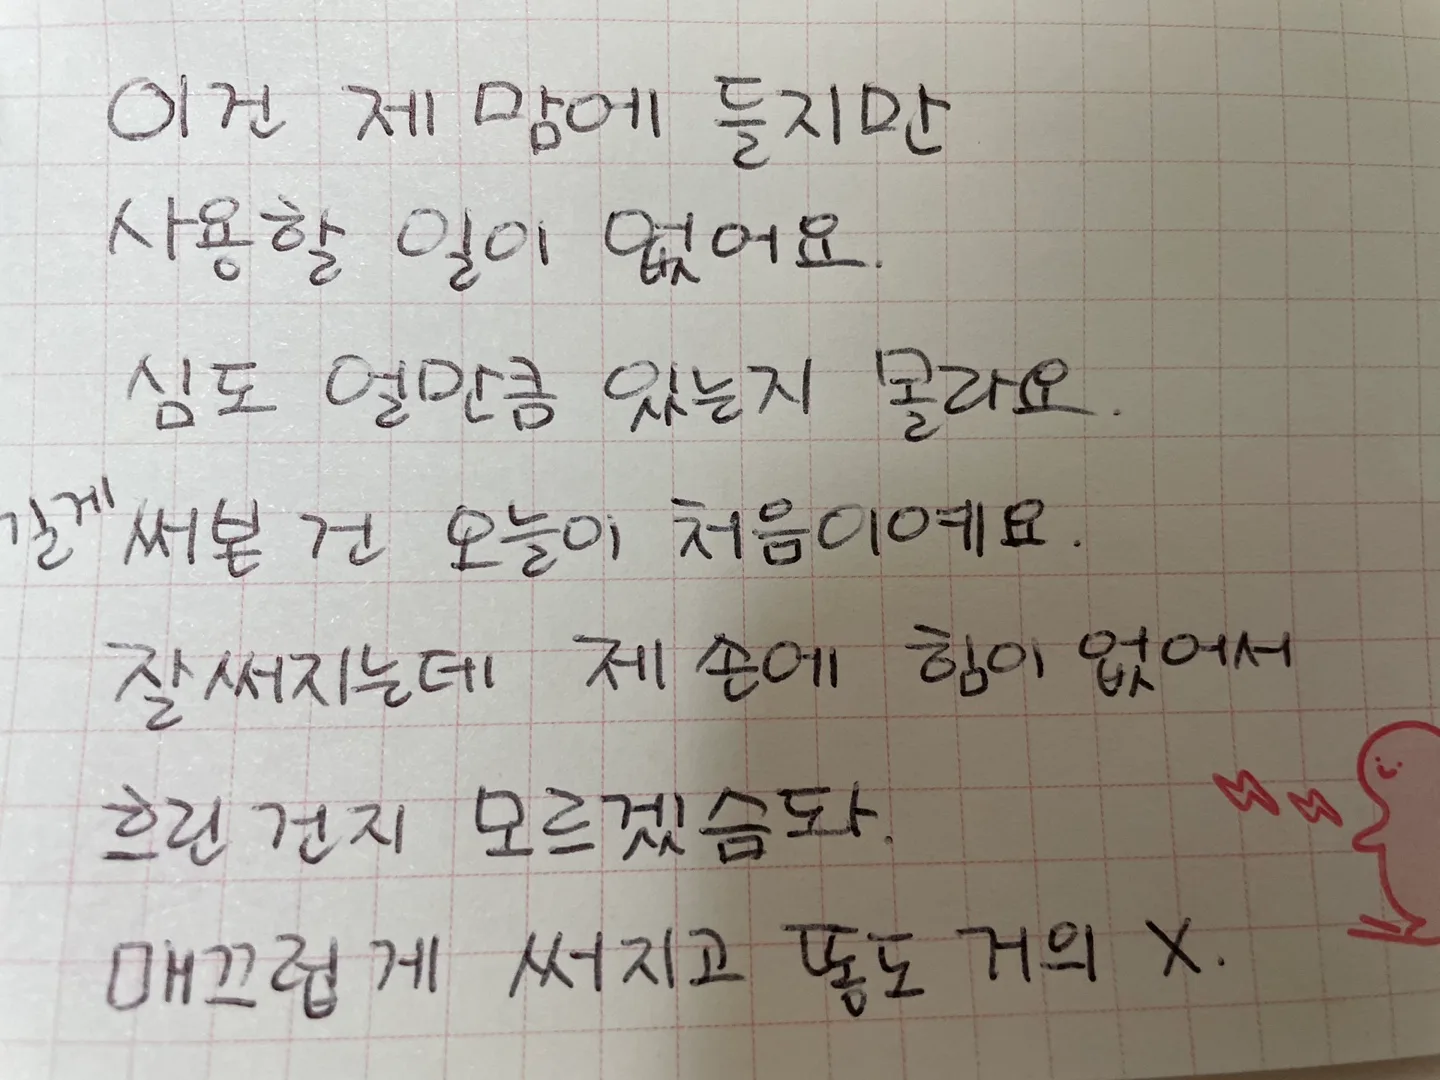 이건 제 맘에 들지만
사용할 일이 없어요.
심도 얼만큼 있는지 몰라요.
길게 써본 건 오늘이 처음이예요.
잘써지는데 제 손에 힘이 없어서
흐린 건지 모르겠슴돠.
매끄럽게 써지고 똥도 거의 X.